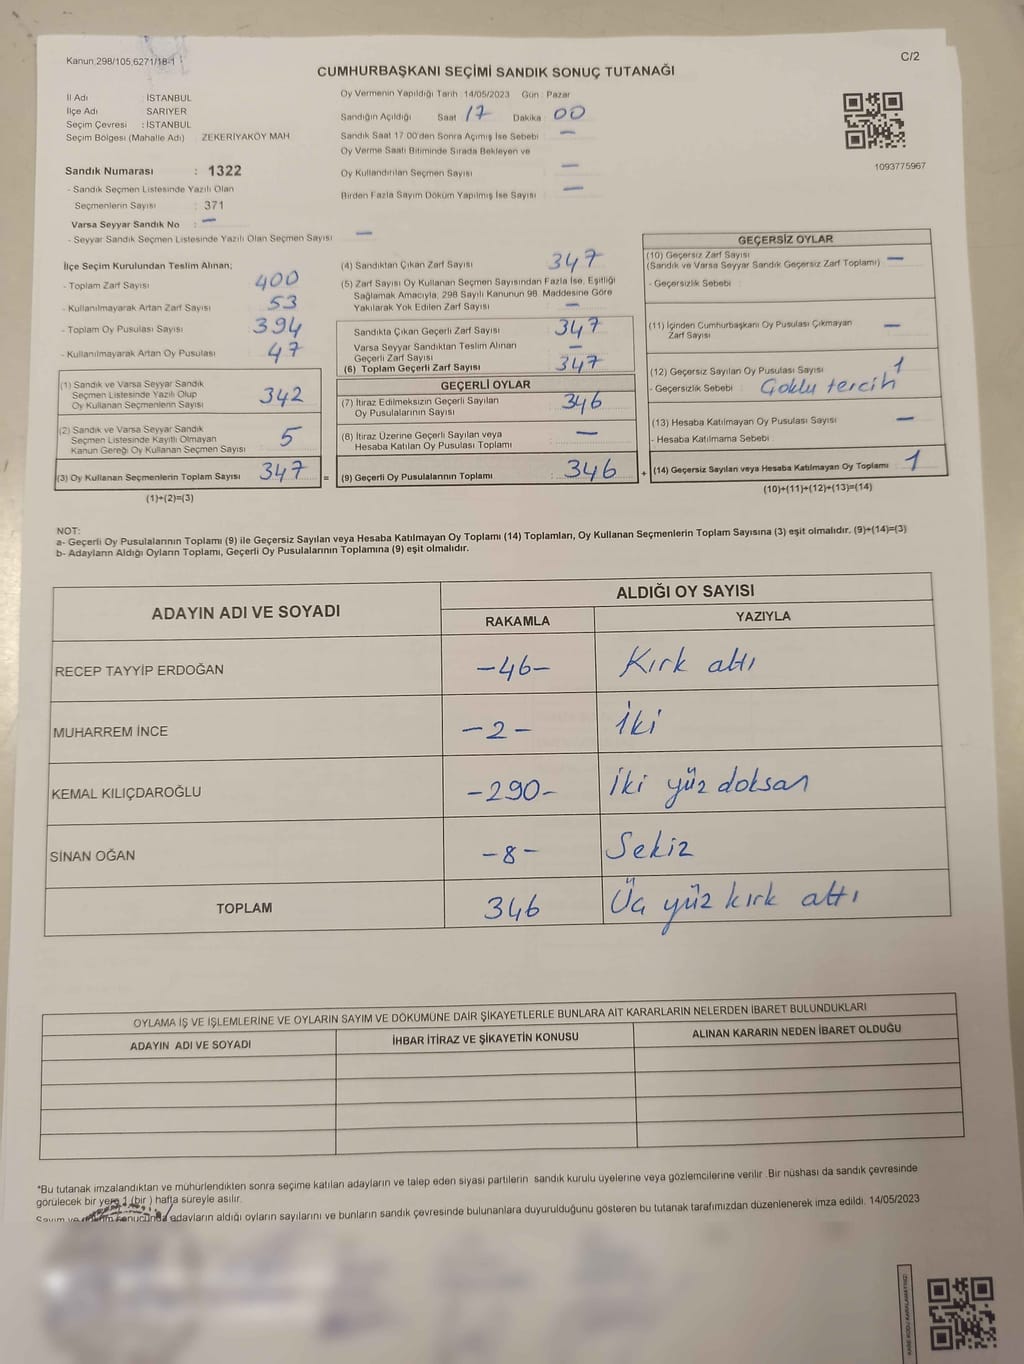 Kanun,298/105,6271/18-1
C/2
CUMHURBAŞKANI SEÇİMİ SANDIK SONUÇ TUTANAĞI
İl Adı : İSTANBUL
İlçe Adı : SARIYER
Seçim Çevresi : İSTANBUL
Seçim Bölgesi (Mahalle Adı) ZEKERİYAKÖY MAH
Oy Vermenin Yapıldığı Tarih :14/05/2023 Gün : Pazar
Sandığın Açıldığı Saat 17 Dakika 00
Sandık Saat 17.00'den Sonra Açılmış İse Sebebi –
Oy Verme Saati Bitiminde Sırada Bekleyen ve
Oy Kullandırılan Seçmen Sayısı –
Birden Fazla Sayım Döküm Yapılmış İse Sayısı –
1093775967
Sandık Numarası : 1322
- Sandık Seçmen Listesinde Yazılı Olan
Seçmenlerin Sayısı : 371
Varsa Seyyar Sandık No : –
- Seyyar Sandık Seçmen Listesinde Yazılı Olan Seçmen Sayısı –
İlçe Seçim Kurulundan Teslim Alınan;
- Toplam Zarf Sayısı 400
- Kullanılmayarak Artan Zarf Sayısı 53
- Toplam Oy Pusulası Sayısı 394
- Kullanılmayarak Artan Oy Pusulası 47
(1) Sandık ve Varsa Seyyar Sandık
Seçmen Listesinde Yazılı Olup
Oy Kullanan Seçmenlerin Sayısı 342
(2) Sandık ve Varsa Seyyar Sandık
Seçmen Listesinde Kayıtlı Olmayan
Kanun Gereği Oy Kullanan Seçmen Sayısı 5
(3) Oy Kullanan Seçmenlerin Toplam Sayısı 347 =
(1)+(2)=(3)
(4) Sandıktan Çıkan Zarf Sayısı 347
(5) Zarf Sayısı Oy Kullanan Seçmen Sayısından Fazla İse, Eşitliği
Sağlamak Amacıyla, 298 Sayılı Kanunun 98. Maddesine Göre
Yakılarak Yok Edilen Zarf Sayısı –
Sandıkta Çıkan Geçerli Zarf Sayısı 347
Varsa Seyyar Sandıktan Teslim Alınan
Geçerli Zarf Sayısı –
(6) Toplam Geçerli Zarf Sayısı 347
GEÇERLİ OYLAR
(7) İtiraz Edilmeksizin Geçerli Sayılan
Oy Pusulalarının Sayısı 346
(8) İtiraz Üzerine Geçerli Sayılan veya
Hesaba Katılan Oy Pusulası Toplamı –
(9) Geçerli Oy Pusulalarının Toplamı : 346 +
GEÇERSİZ OYLAR
(10) Geçersiz Zarf Sayısı
(Sandık ve Varsa Seyyar Sandık Geçersiz Zarf Toplamı) –
- Geçersizlik Sebebi :
(11) İçinden Cumhurbaşkanı Oy Pusulası Çıkmayan
Zarf Sayısı –
(12) Geçersiz Sayılan Oy Pusulası Sayısı 1
- Geçersizlik Sebebi : Çoklu tercih
(13) Hesaba Katılmayan Oy Pusulası Sayısı –
- Hesaba Katılmama Sebebi :
(14) Geçersiz Sayılan veya Hesaba Katılmayan Oy Toplamı 1
(10)+(11)+(12)+(13)=(14)
NOT:
a- Geçerli Oy Pusulalarının Toplamı (9) ile Geçersiz Sayılan veya Hesaba Katılmayan Oy Toplamı (14) Toplamları, Oy Kullanan Seçmenlerin Toplam Sayısına (3) eşit olmalıdır. (9)+(14)=(3)
b- Adayların Aldığı Oyların Toplamı, Geçerli Oy Pusulalarının Toplamına (9) eşit olmalıdır.
ADAYIN ADI VE SOYADI
ALDIĞI OY SAYISI
RAKAMLA YAZIYLA
RECEP TAYYİP ERDOĞAN -46- Kırk altı
MUHARREM İNCE -2- İki
KEMAL KILIÇDAROĞLU -290- İki yüz doksan
SİNAN OĞAN -8- Sekiz
TOPLAM 346 Üç yüz kırk altı
OYLAMA İŞ VE İŞLEMLERİNE VE OYLARIN SAYIM VE DÖKÜMÜNE DAİR ŞİKAYETLERLE BUNLARA AİT KARARLARIN NELERDEN İBARET BULUNDUKLARI
ADAYIN ADI VE SOYADI İHBAR İTİRAZ VE ŞİKAYETİN KONUSU ALINAN KARARIN NEDEN İBARET OLDUĞU
*Bu tutanak imzalandıktan ve mühürlendikten sonra seçime katılan adayların ve talep eden siyasi partilerin sandık kurulu üyelerine veya gözlemcilerine verilir .Bir nüshası da sandık çevresinde
görülecek bir yere 1 (bir ) hafta süreyle asılır.
Sayım ve döküm sonucunda adayların aldığı oyların sayılarını ve bunların sandık çevresinde bulunanlara duyurulduğunu gösteren bu tutanak tarafımızdan düzenlenerek imza edildi. 14/05/2023